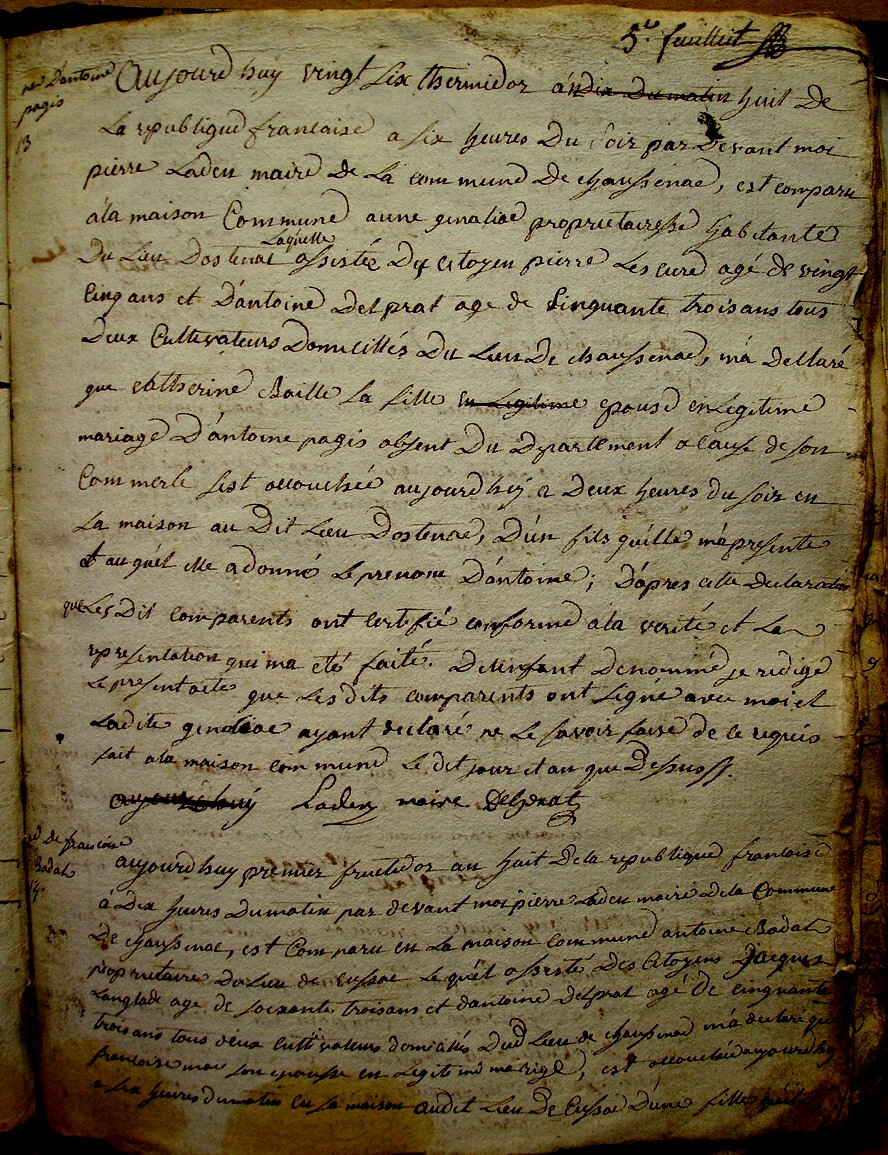 5e feuillet
Aujourd huy vingt six thermidor an dix du matin huit de
ne d'antoine
pagis
13
La republique francaise a six heures du soir par devant moi
pierre Laden maire de La commune de chaussenac, est comparu
a la maison Commune anne genaliac proprietairesse habitante
du Lieu dostenac Laquelle assistée du citoyen pierre Lescure agé de vingt
Cinq ans et d'antoine delprat age de Cinquante trois ans tous
deux Cultivateurs domicilliés du Lieu de chaussenac, m'a declaré
que catherine Baille sa fille en Legitime epouse en Legitime
mariage d'antoine pagis absent du departement a cause de son
Commerce s'est accouchée aujourd'huy a deux heures du soir en
sa maison au dit Lieu dostenac, d'un fils qu'elle m'a presenté
et auquel elle a donné Le prenom d'antoine; d'apres cette declaration
que Les dit comparents ont certifié conforme a la verité et La
representation qui m'a eté faite. de l'enfant denommé je redige
Le present acte que Les dits comparents ont signé avec moi et
Ladite genaliac ayant declaré ne Le savoir faire de ce requis
fait a la maison commune Le dit jour et an que dessus.
aujourd'huy Laden maire Delprat
de francoise
Badal
14
aujourd huy premier fructidor an huit de la republique francaise
à dix heures du matin par devant moi pierre Laden maire de la Commune
de chaussenac, est Comparu en La maison commune antoine Badal
proprietaire du Lieu de Cussac Lequel assisté des Citoyens Jacques
Langlade age de soixante trois ans et d'antoine delprat agé de cinquante
trois ans tous deux cultivateurs domicilliés dud Lieu de chaussenac m'a declaré que
francoise mas son epouse en Legitime mariage, est accouchée aujourd'huy
a six heures du matin en sa maison audit Lieu de Cussac d'une fille qu'il